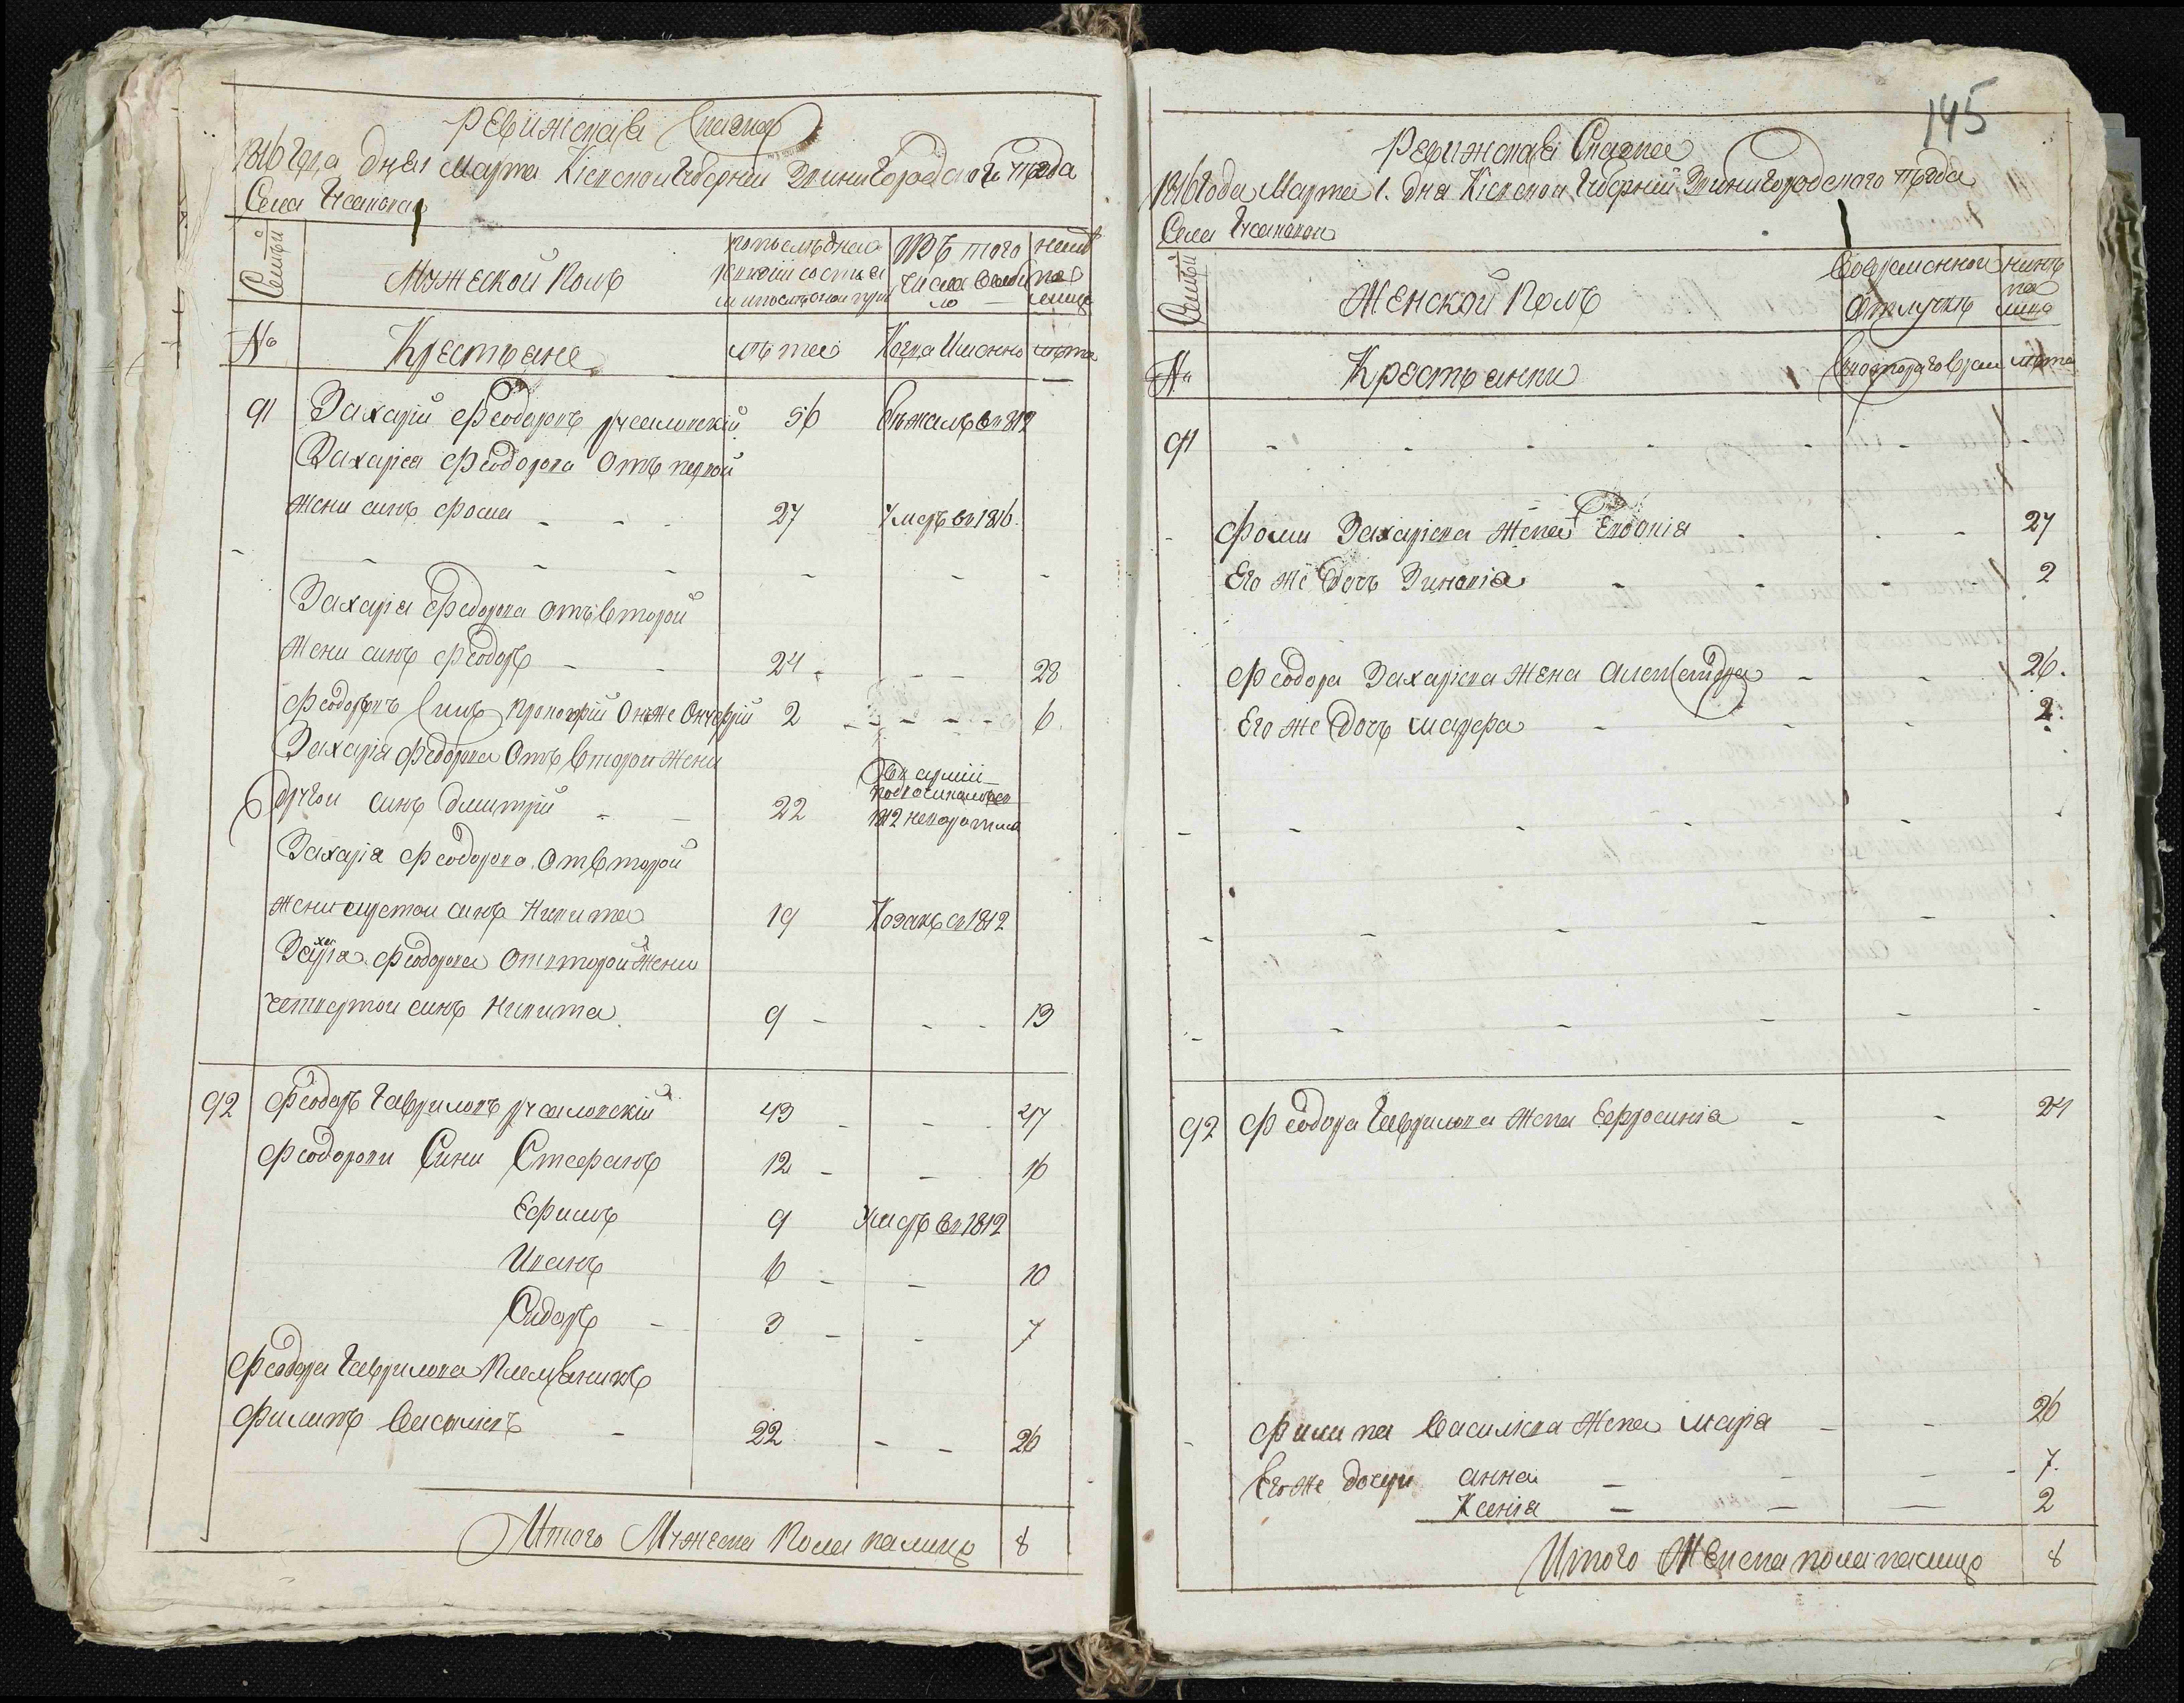 Ревижская Сказка
1816 года дня 1 Марта Кіевской Губерніи Звинигородского Повѣта
Села
Семьи
Мужеской Полъ
По последней ревизіи состояло и после оной прибыло
Изъ того числа выбыло
Ныне на лицо
№
Крестьяне
лѣта
Когда Именно
лѣта
91 Захарій Феодоровъ 56 бѣжалъ в 1812
Захарія Феодорова Отъ первой
жени синъ Фома - - - 27 Умеръ в 1816.
Захарія Федорова отъ второй
Жени синъ Феодоръ - - 24 - - - 28
Феодоровъ Синъ Прокофій Онже Онуфрій 2 - - - - 6.
Захарія Федорова Отъ Второй Жени
другой синъ Дмитрій - - 22
1812
Захарія Феодорова От Второй
жени синъ Никита 19 Козакъ в 1812
Захарія Феодорова От второй жени
четвертой синъ Никита 9 - - - 13
92 Феодоръ Гавриловъ 43 - - - 47
Феодорови Сини Стефанъ 12 - - 16
Ефимъ 9 Умеръ в 1812
Иванъ 6 - - 10
Сидоръ - 3 - - 7
Феодора Гаврилова Племѣникъ
Филипъ Василіевъ - 22 - - 26
Итого Мужеска Пола налицо 8
145
Ревижская Сказка
1816 года Марта 1. дня Кіевской Губерніи Звинигородского Повѣта
Села
Семьи
Женской Полъ
Во временной отлучкѣ
Нинѣ на лицо
№
Крестьянки
лѣта
91 - - - - - - -
Фоми Захаріева Жена Евдокія - - - 27
Его же дочъ Зиновія - - - 2
Феодора Захаріева Жена Александра - - 26.
Его же дочъ Марфа - - - 2.
92 Феодора Гаврилова Жена Ефросинія - - 24
Филипа Василіева Жена Марія - - 26
Его же дочери Анна - - - 7.
Ксенія - - - 2
Итого Женска пола налицо 8